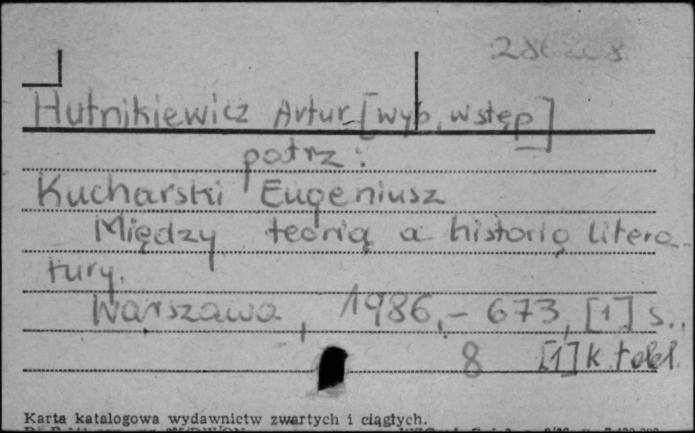 Hutnikiewicz Artur [wyb, wstęp]
potrz:
Kucharski Eugeniusz
Między teorią a historią litera-
tury.
Warszawa, 1986,- 673, [1] s.,
8 [1] k. tabl.
Karta katalogowa wydawnictw zwartych i ciągłych.